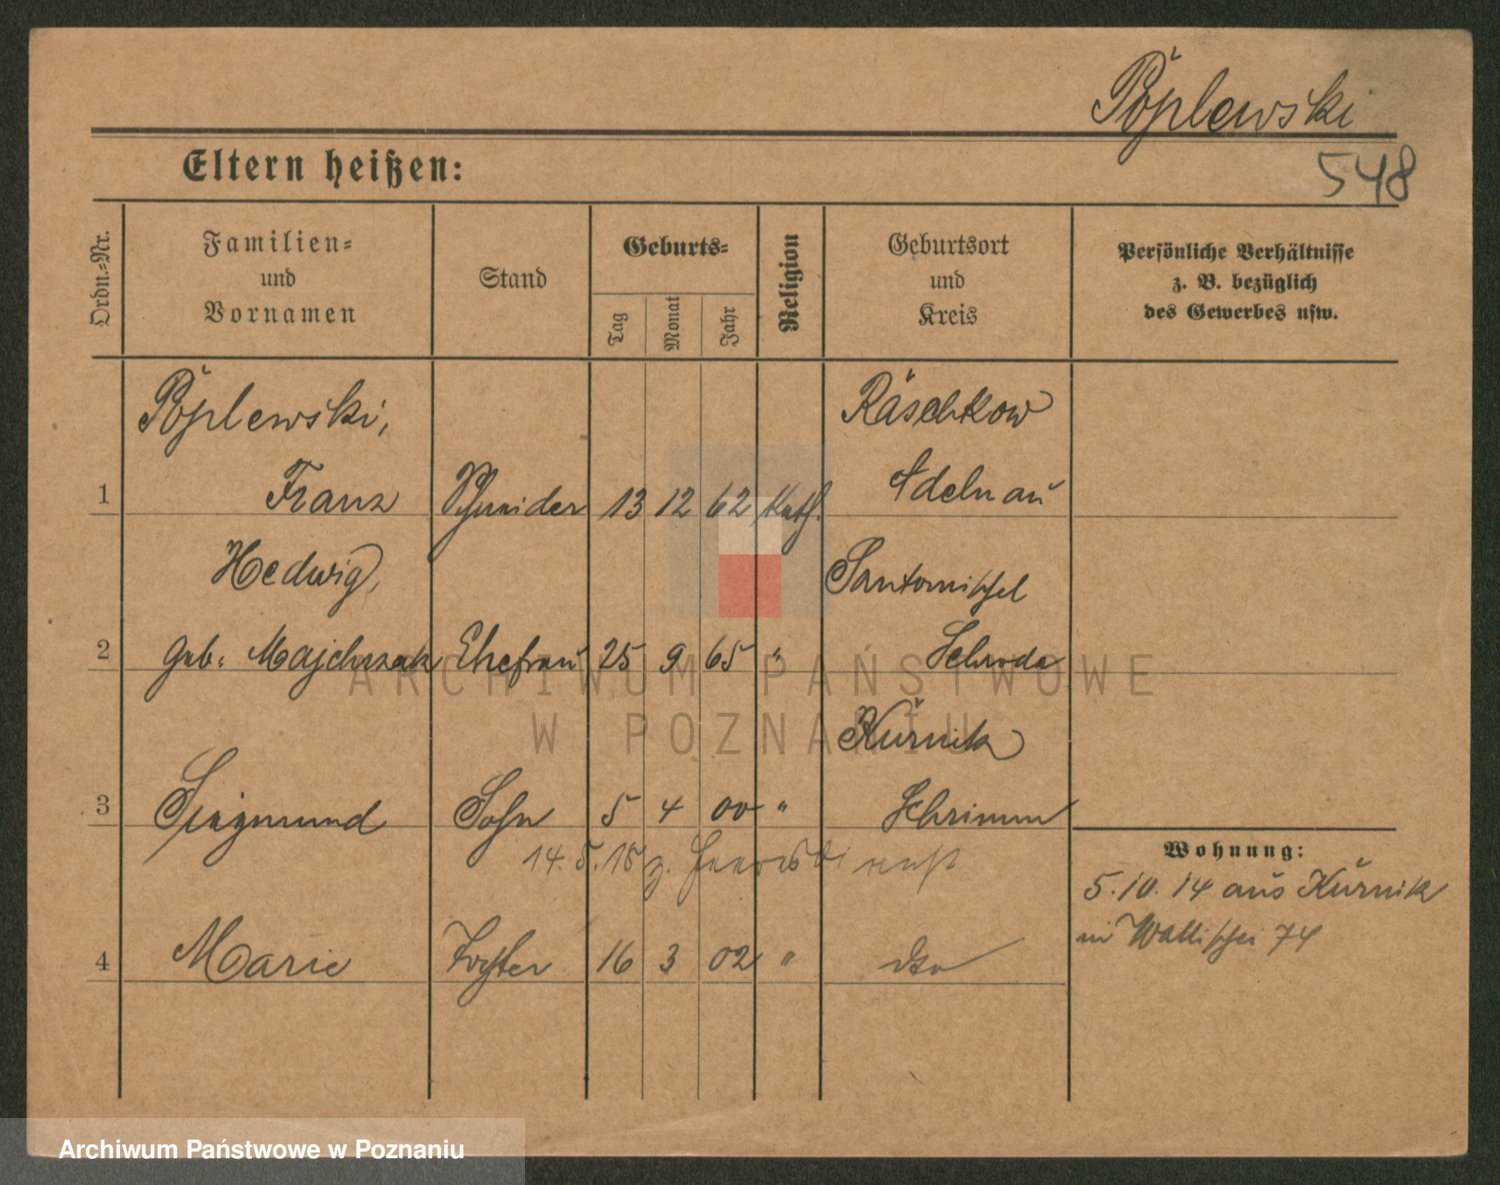 Pöplewski
548
Eltern heißen:
Ordn.-Nr.
Familien- und Vornamen
Stand
Geburts-
Tag
Monat
Jahr
Religion
Geburtsort und Kreis
Persönliche Verhältnisse
z. B. bezüglich
des Gewerbes usw.
Pöplewski,
Räschkow
1 Franz Schneider 13 12 62 Kath. Adelnau
Hedwig,
Santomischel
2 geb. Majchrzak Ehefrau 25 9 65 " Schroda
Kurnik
3 Siegmund Sohn 5 4 00 " Schrimm
14. 5. 18 z. Heeresdienst
4 Marie Tochter 16 3 02 " dto
Wohnung:
5. 10. 14 aus Kurnik
in Wallischei 74
ARCHIWUM PAŃSTWOWE
W POZNANIU
Archiwum Państwowe w Poznaniu